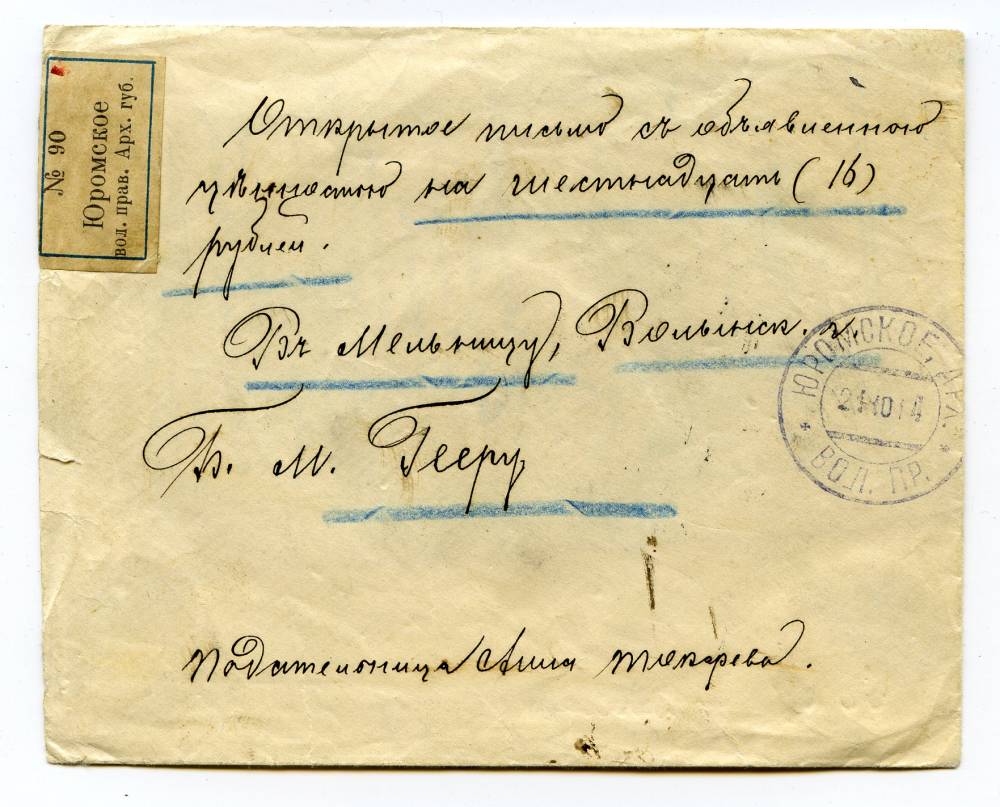 № 90
Юромское
вол. прав. Арх. губ.
Открытое письмо съ объявленною
цѣнностью на шестнадцать (16)
рублей.
Въ Мельницу, Волынск. г.
Б. М. Гееру
ЮРОМСКОЕ, АРХ.
ВОЛ. ПР.
Подательница Анна Токарева.